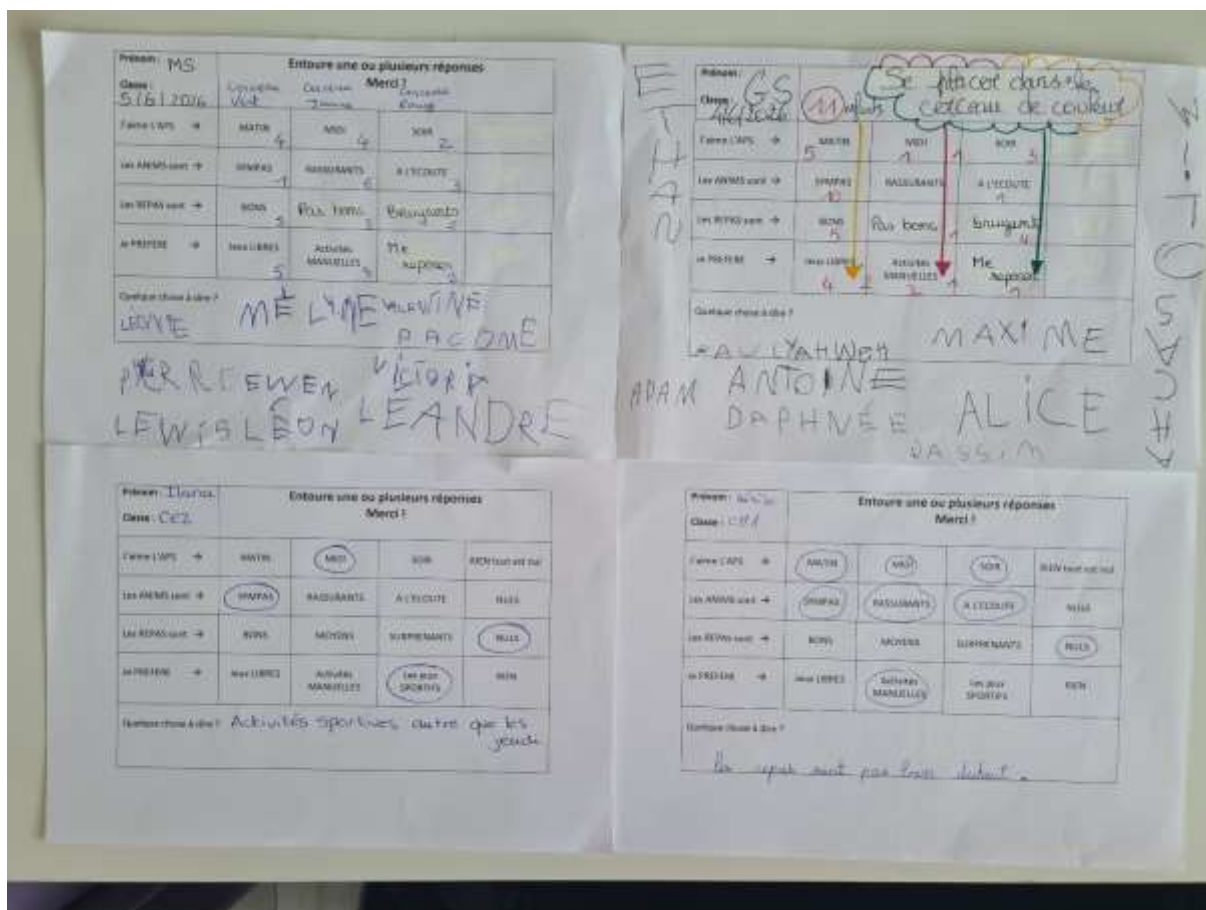 Prénom : MS
Classe :
5/6/2026
Entoure une ou plusieurs réponses
Merci !
Cerceau Vert
Cerceau Jaune
Cerceau Rouge
J'aime L'APS → MATIN 4 MIDI 4 SOIR 2
Les ANIMS sont → SYMPAS RASSURANTS A L'ECOUTE
Les REPAS sont → BONS Pas bons Bruyants
Je PREFERE → Jeux LIBRES 5 Activités MANUELLES Me reposer
Quelque chose à dire ?
LÉONIE MÉLYNE VALENTINE
PACOME
PIERRE EWEN VICTORIA
LEWIS LÉON LÉANDRE
Prénom : GS
Classe :
4/6/2026
11 enfants
Se placer dans le
cerceau de couleur
J'aime L'APS → MATIN 5 MIDI 1 1 SOIR 3
Les ANIMS sont → SYMPAS 10 RASSURANTS A L'ECOUTE 1
Les REPAS sont → BONS 5 Pas bons 1 bruyants 4
Je PREFERE → Jeux LIBRES 4 Activités MANUELLES 1 Me reposer 1
Quelque chose à dire ?
ETHAN
WITO
SACHA
MAXIME
ADAM ANTOINE
DAPHNÉE ALICE
Prénom : Ilana
Classe : CE2
Entoure une ou plusieurs réponses
Merci !
J'aime L'APS → MATIN MIDI SOIR RIEN tout est nul
Les ANIMS sont → SYMPAS RASSURANTS A L'ECOUTE NULS
Les REPAS sont → BONS MOYENS SURPRENANTS NULS
Je PREFERE → Jeux LIBRES Activités MANUELLES Les jeux SPORTIFS RIEN
Quelque chose à dire ? Activités sportives autre que les
jeudi
Prénom :
Classe :
Entoure une ou plusieurs réponses
Merci !
J'aime L'APS → MATIN MIDI SOIR RIEN tout est nul
Les ANIMS sont → SYMPAS RASSURANTS A L'ECOUTE NULS
Les REPAS sont → BONS MOYENS SURPRENANTS NULS
Je PREFERE → Jeux LIBRES Activités MANUELLES Les jeux SPORTIFS RIEN
Quelque chose à dire ?
Les repas sont pas bon dutout.